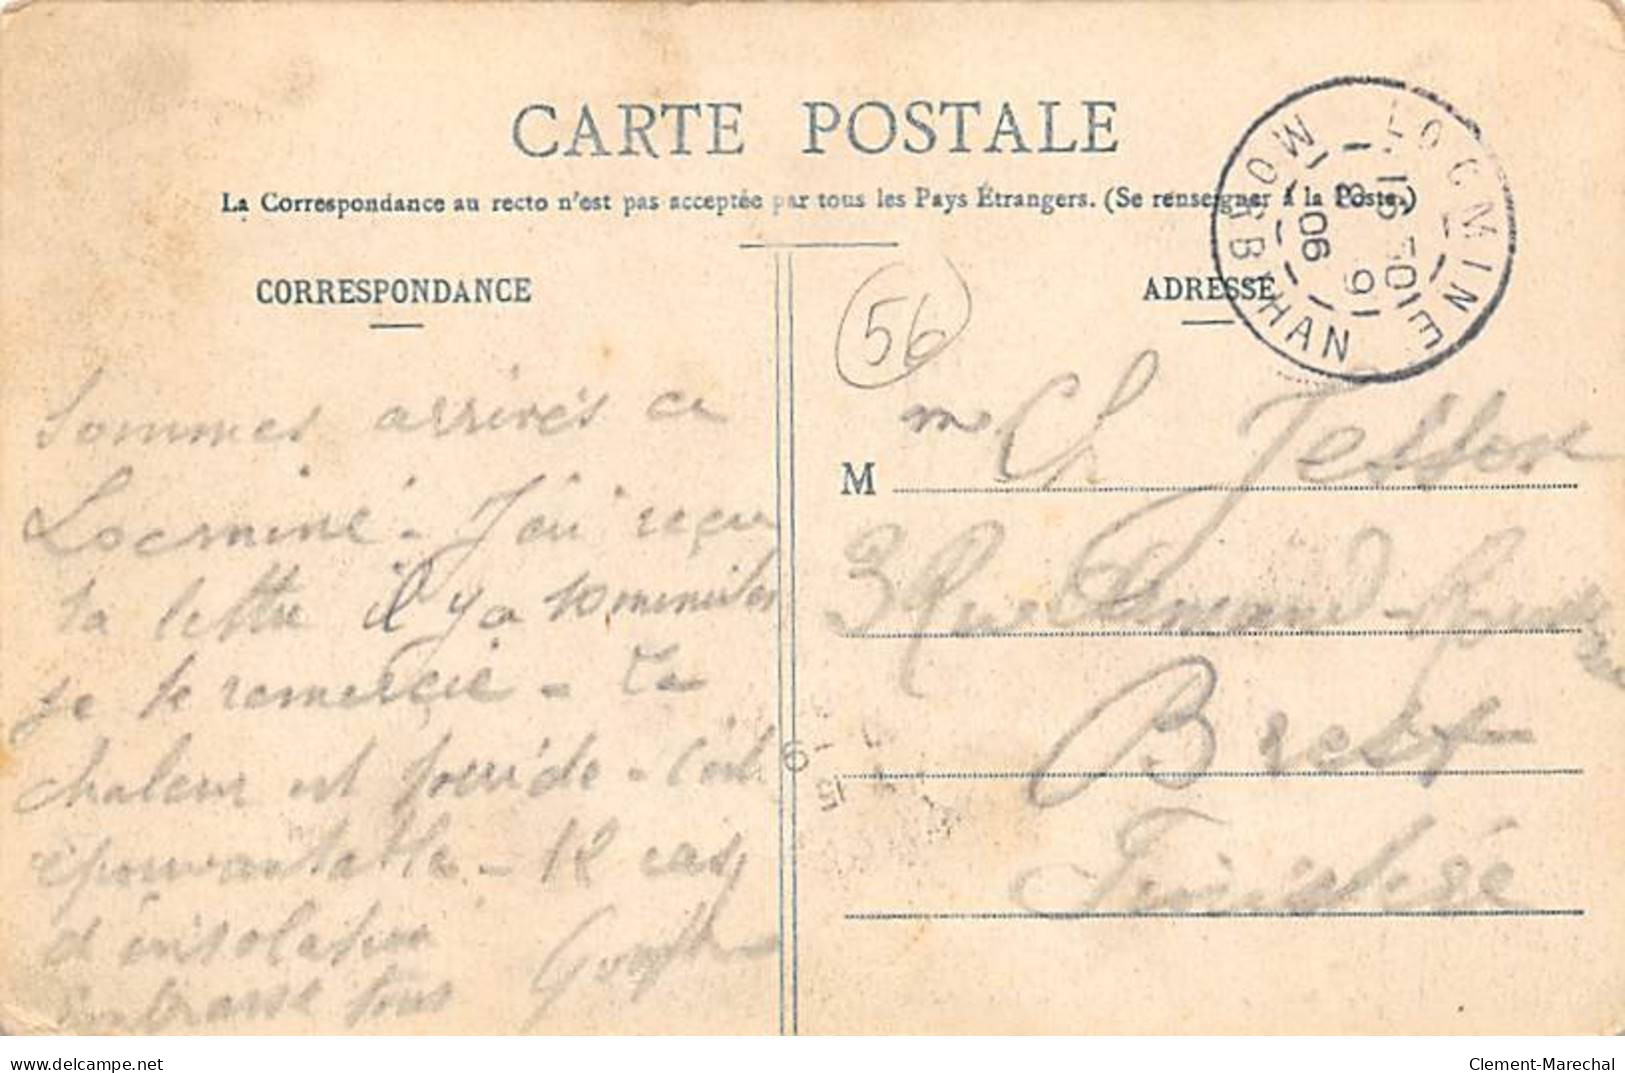 CARTE POSTALE
La Correspondance au recto n'est pas acceptée par tous les Pays Étrangers. (Se renseigner à la Poste.)
CORRESPONDANCE
Sommes arrivés ce
Locminé - J'ai reçu
ta lettre il y a 10 minutes
je te remercie - La
chaleur est torride - C'est
épouvantable - 12 cas
d'insolation
Embrasse tous
ADRESSE
56
LOCMINE
MORBIHAN
15 30
9
8
06
M me Ch
3 Rue Armand
Brest
Finistère
15
9
delcampe.net
Clement-Marechal